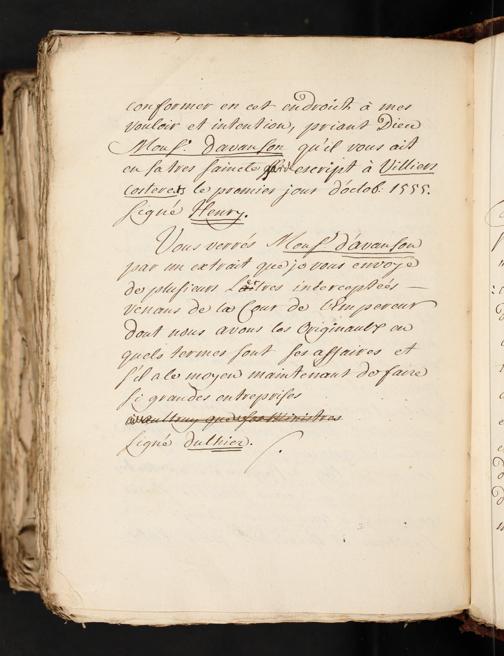 conformer en cet endroit à mes
vouloir et intention, priant Dieu
Monsr. davanson qu'il vous ait
en sa tres saincte escript à Villiers
costerets le premier jour d'octob. 1555.
Signé Henry.
Vous verrés Monsr. d'avanson
par un extrait que je vous envoye
de plusieurs Lettres interceptées —
venans de la Cour de l'Empereur
dont nous avons les Originaulx en
quels termes sont ses affaires et
s'il a le moyen maintenant de faire
si grandes entreprises
que ses Ministres
Signé dulhier.